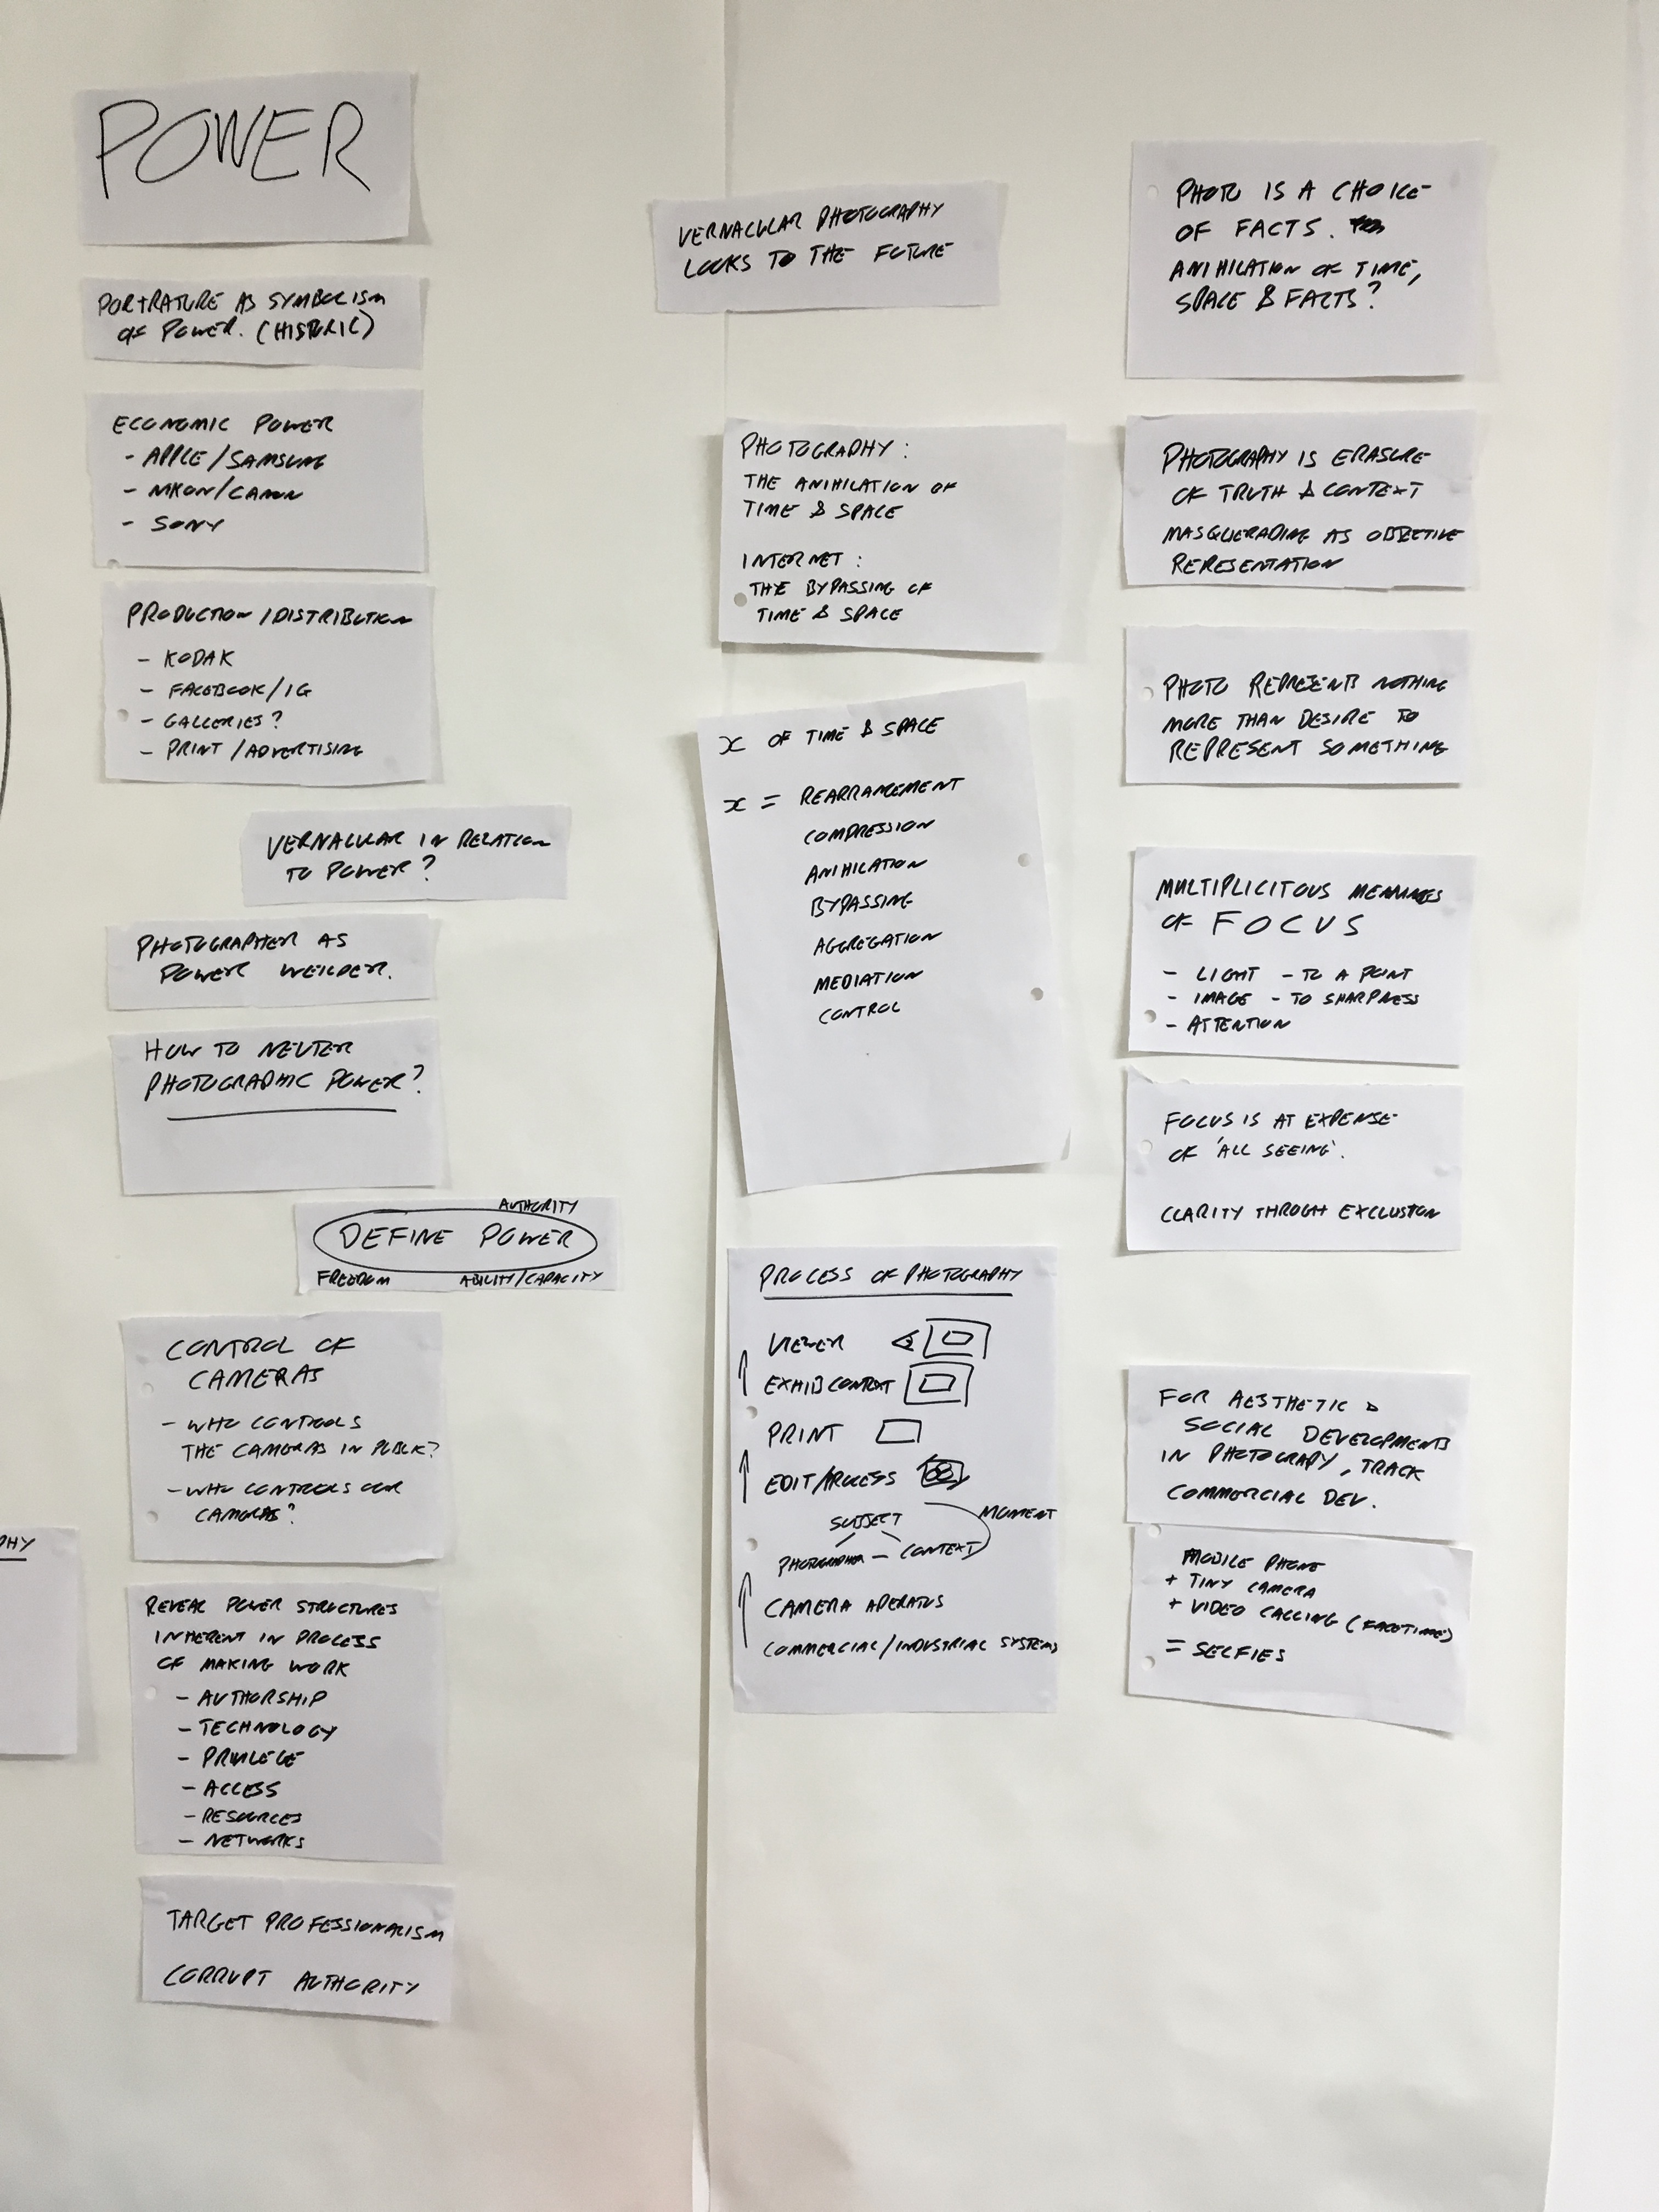 POWER
PORTRATURE AS SYMBOLISM
OF POWER. (HISTORIC)
ECONOMIC POWER
- APPLE/SAMSUNG
- NIKON/CANON
- SONY
PRODUCTION/DISTRIBUTION
- KODAK
- FACEBOOK/IG
- GALLERIES?
- PRINT/ADVERTISING
VERNACULAR IN RELATION
TO POWER?
PHOTOGRAPHER AS
POWER WEILDER.
HOW TO NEUTER
PHOTOGRAPHIC POWER?
AUTHORITY
DEFINE POWER
FREEDOM ABILITY/CAPACITY
CONTROL OF
CAMERAS
- WHO CONTROLS
THE CAMERAS IN PUBLIC?
- WHO CONTROLS OUR
CAMERAS?
REVEAL POWER STRUCTURES
INHERENT IN PROCESS
OF MAKING WORK
- AUTHORSHIP
- TECHNOLOGY
- PRIVILEGE
- ACCESS
- RESOURCES
- NETWORKS
TARGET PROFESSIONALISM
CORRUPT AUTHORITY
PHY
VERNACULAR PHOTOGRAPHY
LOOKS TO THE FUTURE
PHOTOGRAPHY:
THE ANIHILATION OF
TIME & SPACE
INTERNET:
THE BYPASSING OF
TIME & SPACE
x OF TIME & SPACE
x = REARRANGEMENT
COMPRESSION
ANIHILATION
BYPASSING
AGGREGATION
MEDIATION
CONTROL
PROCESS OF PHOTOGRAPHY
VIEWER
EXHIB CONTEXT
PRINT
EDIT/PROCESS
SUBJECT MOMENT
PHOTOGRAPHER - CONTEXT
CAMERA APERATUS
COMMERCIAL/INDUSTRIAL SYSTEMS
PHOTO IS A CHOICE
OF FACTS.
ANIHILATION OF TIME,
SPACE & FACTS?
PHOTOGRAPHY IS ERASURE
OF TRUTH & CONTEXT
MASQUERADING AS OBJECTIVE
REPRESENTATION
PHOTO REPRESENTS NOTHING
MORE THAN DESIRE TO
REPRESENT SOMETHING
MULTIPLICITOUS MEANINGS
OF FOCUS
- LIGHT - TO A POINT
- IMAGE - TO SHARPNESS
- ATTENTION
FOCUS IS AT EXPENSE
OF 'ALL SEEING'.
CLARITY THROUGH EXCLUSION
FOR AESTHETIC &
SOCIAL DEVELOPMENTS
IN PHOTOGRAPY, TRACK
COMMERCIAL DEV.
MOBILE PHONE
+ TINY CAMERA
+ VIDEO CALLING (FACETIME)
= SELFIES